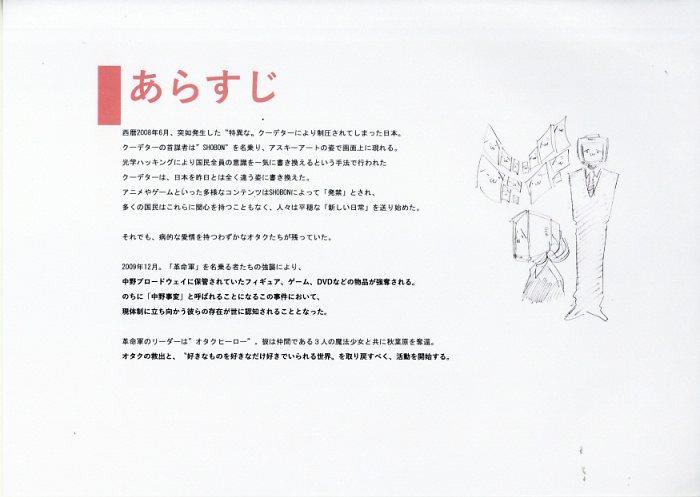 あらすじ
西暦2008年6月、突如発生した〝特異な〟クーデターにより制圧されてしまった日本。
クーデターの首謀者は"SHOBON"を名乗り、アスキーアートの姿で画面上に現れる。
光学ハッキングにより国民全員の意識を一気に書き換えるという手法で行われた
クーデターは、日本を昨日とは全く違う姿に書き換えた。
アニメやゲームといった多様なコンテンツはSHOBONによって「発禁」とされ、
多くの国民はこれらに関心を持つこともなく、人々は平穏な「新しい日常」を送り始めた。
それでも、病的な愛情を持つわずかなオタクたちが残っていた。
2009年12月。「革命軍」を名乗る者たちの強襲により、
中野ブロードウェイに保管されていたフィギュア、ゲーム、DVDなどの物品が強奪される。
のちに「中野事変」と呼ばれることになるこの事件において、
現体制に立ち向かう彼らの存在が世に認知されることとなった。
革命軍のリーダーは"オタクヒーロー"。彼は仲間である3人の魔法少女と共に秋葉原を奪還。
オタクの救出と、〝好きなものを好きなだけ好きでいられる世界〟を取り戻すべく、活動を開始する。